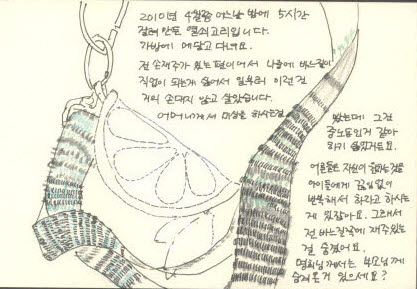 2010년 4월쯤 어느날 밤에 5시간
걸려 만든 열쇠고리입니다.
가방에 메달고 다녀요.
전 손재주가 있는 편이어서 나중에 바느질이
직업이 되는게 싫어서 일부러 이런건
거의 손대지 않고 살았습니다.
어머니께서 미싱을 하시는걸
봤는데 그건
중노동인거 같아
하기 싫었거든요.
어른들은 자신이 힘들었던
아이들에게 끊임없이
반복해서 하라고 하시는
게 있잖아요. 그래서
전 바느질쪽에 재주있는
걸 숨겼어요.
명희님께서는 부모님께
숨겨온거 있으세요?